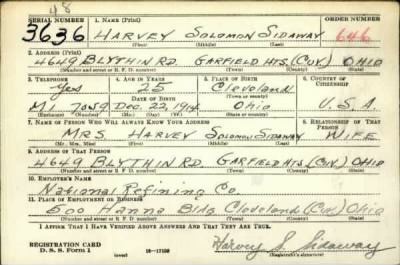 48
SERIAL NUMBER 1. NAME (Print) ORDER NUMBER
3636 HARVEY SOLOMON SIDAWAY 646
(First) (Middle) (Last)
2. ADDRESS (Print)
4649 BLYTHIN RD. GARFIELD HTS. (CUY.) OHIO
(Number and street or R. F. D. number) (Town) (County) (State)
3. TELEPHONE 4. AGE IN YEARS 5. PLACE OF BIRTH 6. COUNTRY OF CITIZENSHIP
Yes 25 Cleveland
DATE OF BIRTH (Town or county)
MI. 7059 Dec. 22, 1914 Ohio U.S.A.
(Exchange) (Number) (Mo.) (Day) (Yr.) (State or country)
7. NAME OF PERSON WHO WILL ALWAYS KNOW YOUR ADDRESS 8. RELATIONSHIP OF THAT PERSON
MRS. HARVEY SOLOMON SIDAWAY WIFE
(Mr., Mrs., Miss) (First) (Middle) (Last)
9. ADDRESS OF THAT PERSON
4649 BLYTHIN RD. GARFIELD HTS. (CUY.) OHIO
(Number and street or R. F. D. number) (Town) (County) (State)
10. EMPLOYER'S NAME
National Refining Co.
11. PLACE OF EMPLOYMENT OR BUSINESS
500 Hanna Bldg Cleveland (Cuy.) Ohio
(Number and street or R. F. D. number) (Town) (County) (State)
I AFFIRM THAT I HAVE VERIFIED ABOVE ANSWERS AND THAT THEY ARE TRUE.
REGISTRATION CARD
D. S. S. Form 1 16-17105 Harvey S. Sidaway
(Registrant's signature)